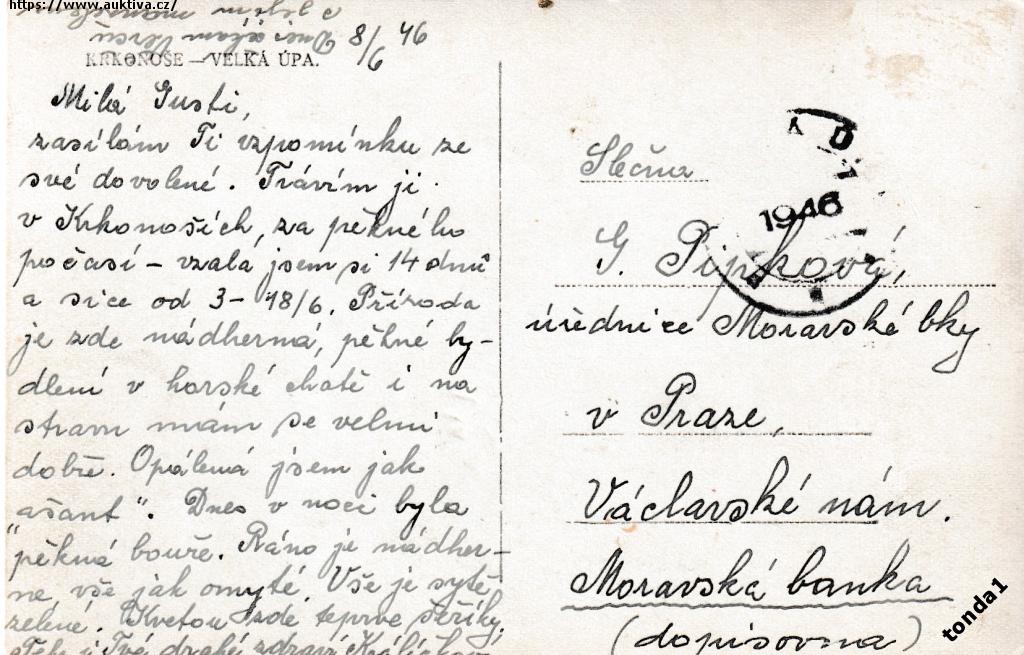 https://www.auktiva.cz/
8/6 46
KRKONOŠE — VELKÁ ÚPA.
Milá Gusti,
zasílám Ti vzpomínku ze
své dovolené. Trávím ji
v Krkonoších, za pěkného
počasí – vzala jsem si 14 dnů
a sice od 3–18/6. Příroda
je zde nádherná, pěkné by-
dlení v horské chatě i na
stravu mám se velmi
dobře. Opálená jsem jak
"ašant". Dnes v noci byla
pěkná bouře. Ráno je nádher-
ně vše jak omyté. Vše je sytě
zelené. Kvetou zde teprve šeříky.
Tebe i Tvé drahé zdraví
Slečna
G. Pipková,
úřednice Moravské bky
v Praze,
Václavské nám.
Moravská banka
(dopisovna)
1946
tonda1